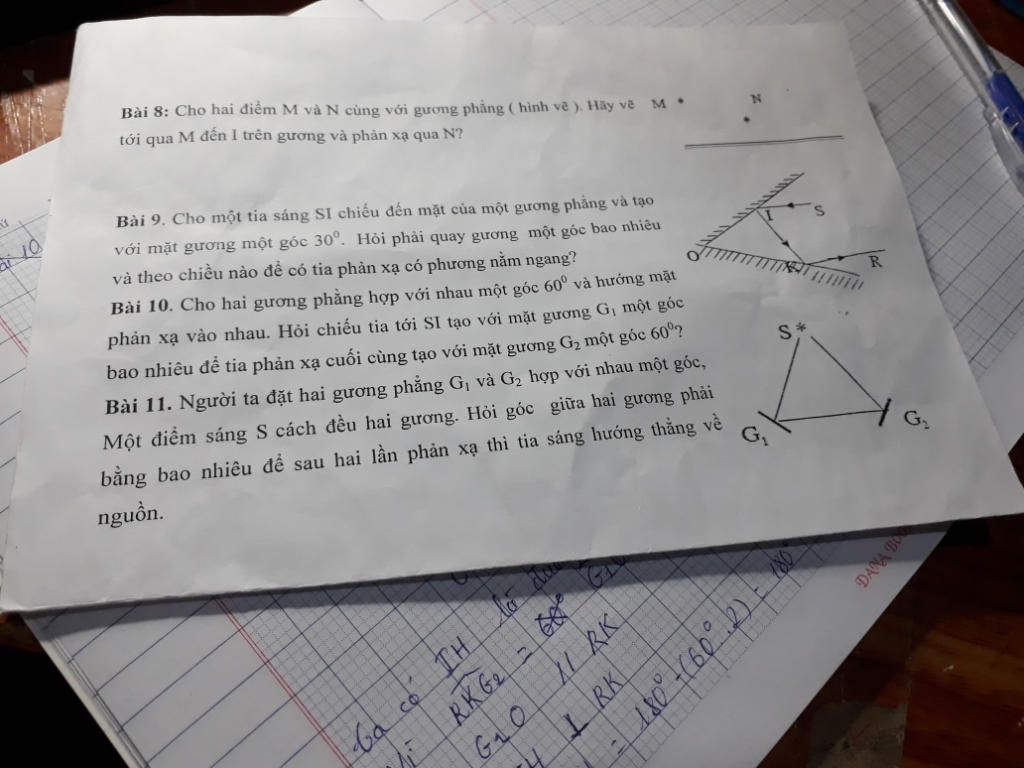 Bài 8: Cho hai điểm M và N cùng với gương phẳng ( hình vẽ ). Hãy vẽ
tới qua M đến I trên gương và phản xạ qua N?
M
N
Bài 9. Cho một tia sáng SI chiếu đến mặt của một gương phẳng và tạo
với mặt gương một góc 30⁰. Hỏi phải quay gương một góc bao nhiêu
và theo chiều nào để có tia phản xạ có phương nằm ngang?
I
S
O
K
R
Bài 10. Cho hai gương phẳng hợp với nhau một góc 60⁰ và hướng mặt
phản xạ vào nhau. Hỏi chiếu tia tới SI tạo với mặt gương G₁ một góc
bao nhiêu để tia phản xạ cuối cùng tạo với mặt gương G₂ một góc 60⁰?
Bài 11. Người ta đặt hai gương phẳng G₁ và G₂ hợp với nhau một góc,
Một điểm sáng S cách đều hai gương. Hỏi góc giữa hai gương phải
bằng bao nhiêu để sau hai lần phản xạ thì tia sáng hướng thẳng về
nguồn.
S
G₁
G₂
Ta có IH là
RKG₂ = 60⁰
G₂O // RK
⊥ RK
= 180⁰ - (60⁰.2) = 180⁰